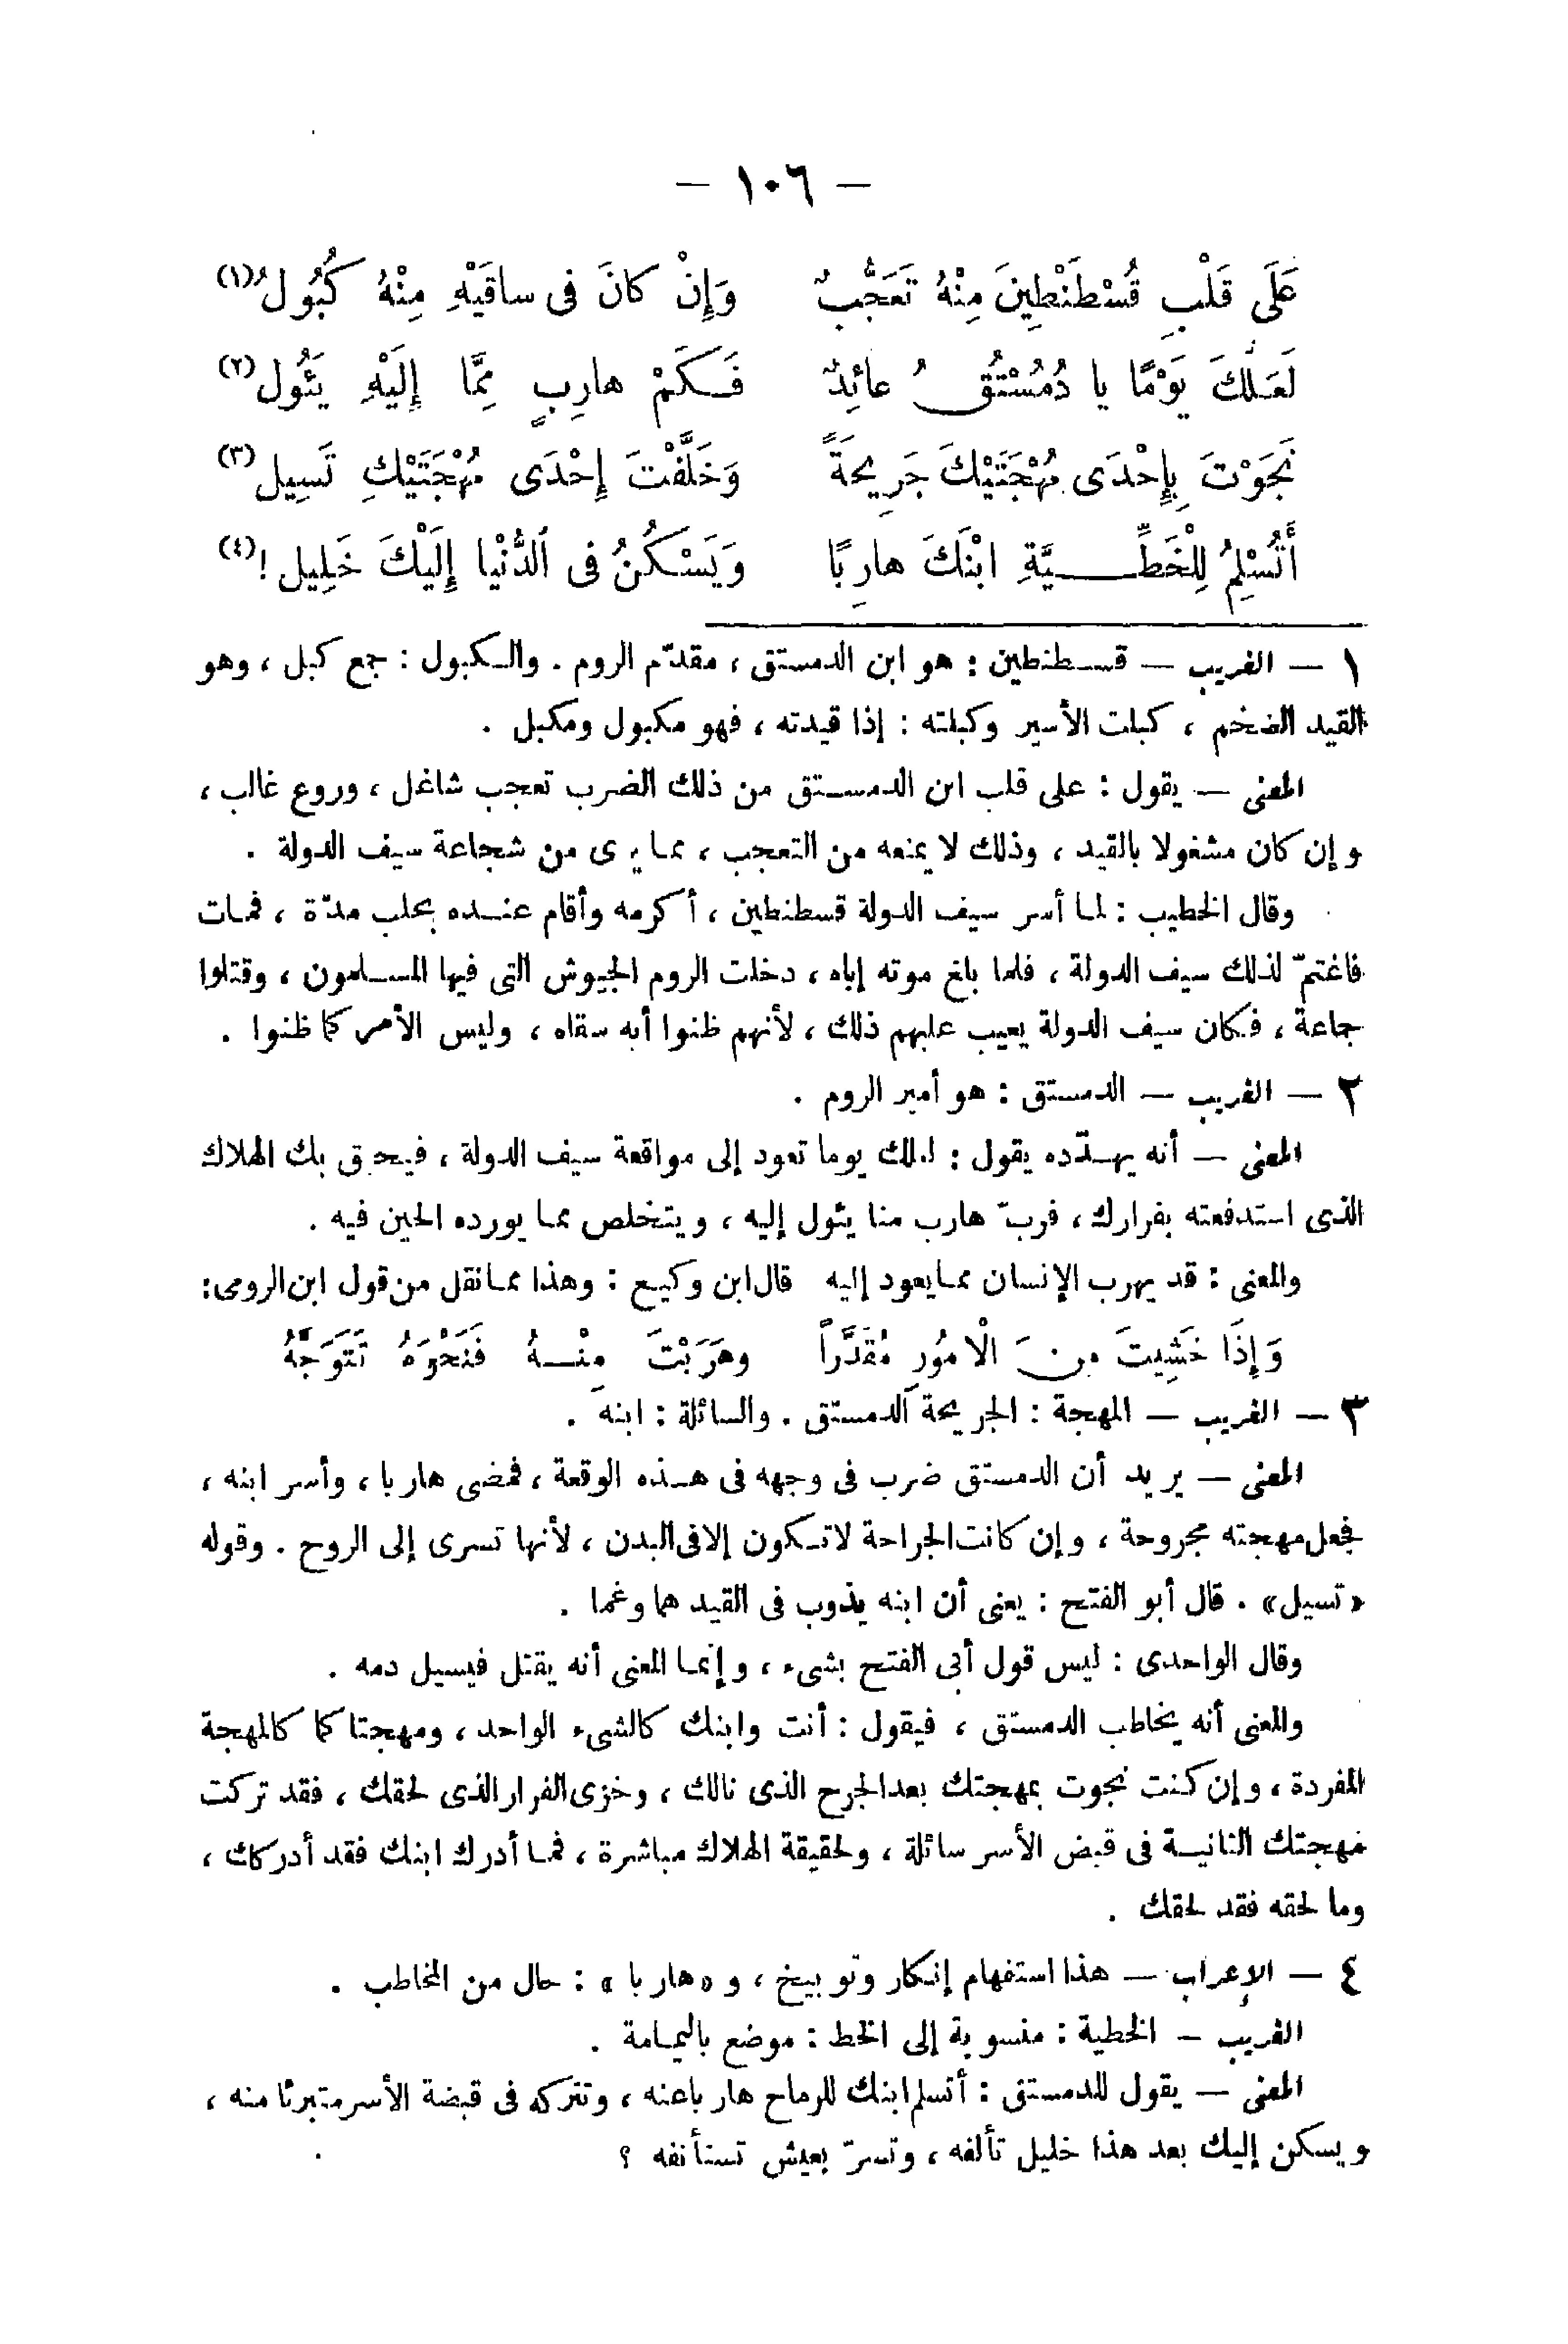 — ١٠٦ —
عَلَى قَلْبِ قُسْطَنْطِينَ مِنْهُ تَعَجُّبٌ وَإِنْ كانَ فى ساقَيْهِ مِنْهُ كُبُولُ (١)
لَعَلَّكَ يَوْمًا يا دُمُسْتُقُ عائِدٌ فَكَمْ هارِبٍ مِمَّا إِلَيْهِ يَئُول (٢)
نَجَوْتَ بِإِحْدَى مُهْجَتَيْكَ جَرِيحَةً وَخَلَّفْتَ إِحْدَى مُهْجَتَيْكِ تَسِيل (٣)
أَتُسْلِمُ لِلْخَطِّيَّةِ ابْنَكَ هارِبًا وَيَسْكُنُ فى الدُّنْيا إِلَيْكَ خَلِيل ! (٤)
١ — الغريب — قسطنطين : هو ابن الدمستق ، مقدّم الروم . والكبول : جمع كبل ، وهو
القيد الضخم ، كبلت الأسير وكبلته : إذا قيدته ، فهو مكبول ومكبل .
المعنى — يقول : على قلب ابن الدمستق من ذلك الضرب تعجب شاغل ، وروع غالب ،
وإن كان مشغولا بالقيد ، وذلك لا يمنعه من التعجب ، مما يرى من شجاعة سيف الدولة .
وقال الخطيب : لما أسر سيف الدولة قسطنطين ، أكرمه وأقام عنده بحلب مدّة ، فمات
فاغتمّ لذلك سيف الدولة ، فلما بلغ موته إباه ، دخلت الروم الجيوش التى فيها المسلمون ، وقتلوا
جماعة ، فكان سيف الدولة يعيب عليهم ذلك ، لأنهم ظنوا أبه سقاه ، وليس الأمر كما ظنوا .
٢ — الغريب — الدمستق : هو أمير الروم .
المعنى — أنه يهدّده يقول : لعلك يوما تعود إلى مواقعة سيف الدولة ، فيحيق بك الهلاك
الذى استدفعته بفرارك ، فربّ هارب منا يئول إليه ، ويتخلص مما يورده الحين فيه .
والمعنى : قد يهرب الإنسان مما يعود إليه قال ابن وكيع : وهذا مما نقل من قول ابن الرومى :
وَإِذَا خَشِيتَ مِنَ الْامُورِ مُقَدَّراً وهَرَبْتَ مِنْهُ فَنَحْوَهُ تَتَوَجَّهُ
٣ — الغريب — المهجة : الجريحة الدمستق . والسائلة : ابنه .
المعنى — يريد أن الدمستق ضرب فى وجهه فى هذه الوقعة ، فمضى هاربا ، وأسر ابنه ،
فجعل مهجته مجروحة ، وإن كانت الجراحة لا تكون إلا فى البدن ، لأنها تسرى إلى الروح . وقوله
« تسيل » . قال أبو الفتح : يعنى أن ابنه يذوب فى القيد هما وغما .
وقال الواحدى : ليس قول أبى الفتح بشىء ، وإنما المعنى أنه يقتل فيسيل دمه .
والمعنى أنه يخاطب الدمستق ، فيقول : أنت وابنك كالشىء الواحد ، ومهجتا كما كالمهجة
المفردة ، وإن كنت نجوت بمهجتك بعد الجرح الذى نالك ، وخزى الفرار الذى لحقك ، فقد تركت
مهجتك الثانية فى قبض الأسر سائلة ، ولحقيقة الهلاك مباشرة ، فما أدرك ابنك فقد أدركك ،
وما لحقه فقد لحقك .
٤ — الإعراب — هذا استفهام إنكار وتوبيخ ، و « هاربا » : حال من المخاطب .
الغريب — الخطية : منسوبة إلى الخط : موضع باليمامة .
المعنى — يقول للدمستق : أتسلم ابنك للرماح هاربا عنه ، وتتركه فى قبضة الأسر متبرئا منه ،
ويسكن إليك بعد هذا خليل تألفه ، وتسرّ بعيش تستأنفه ؟